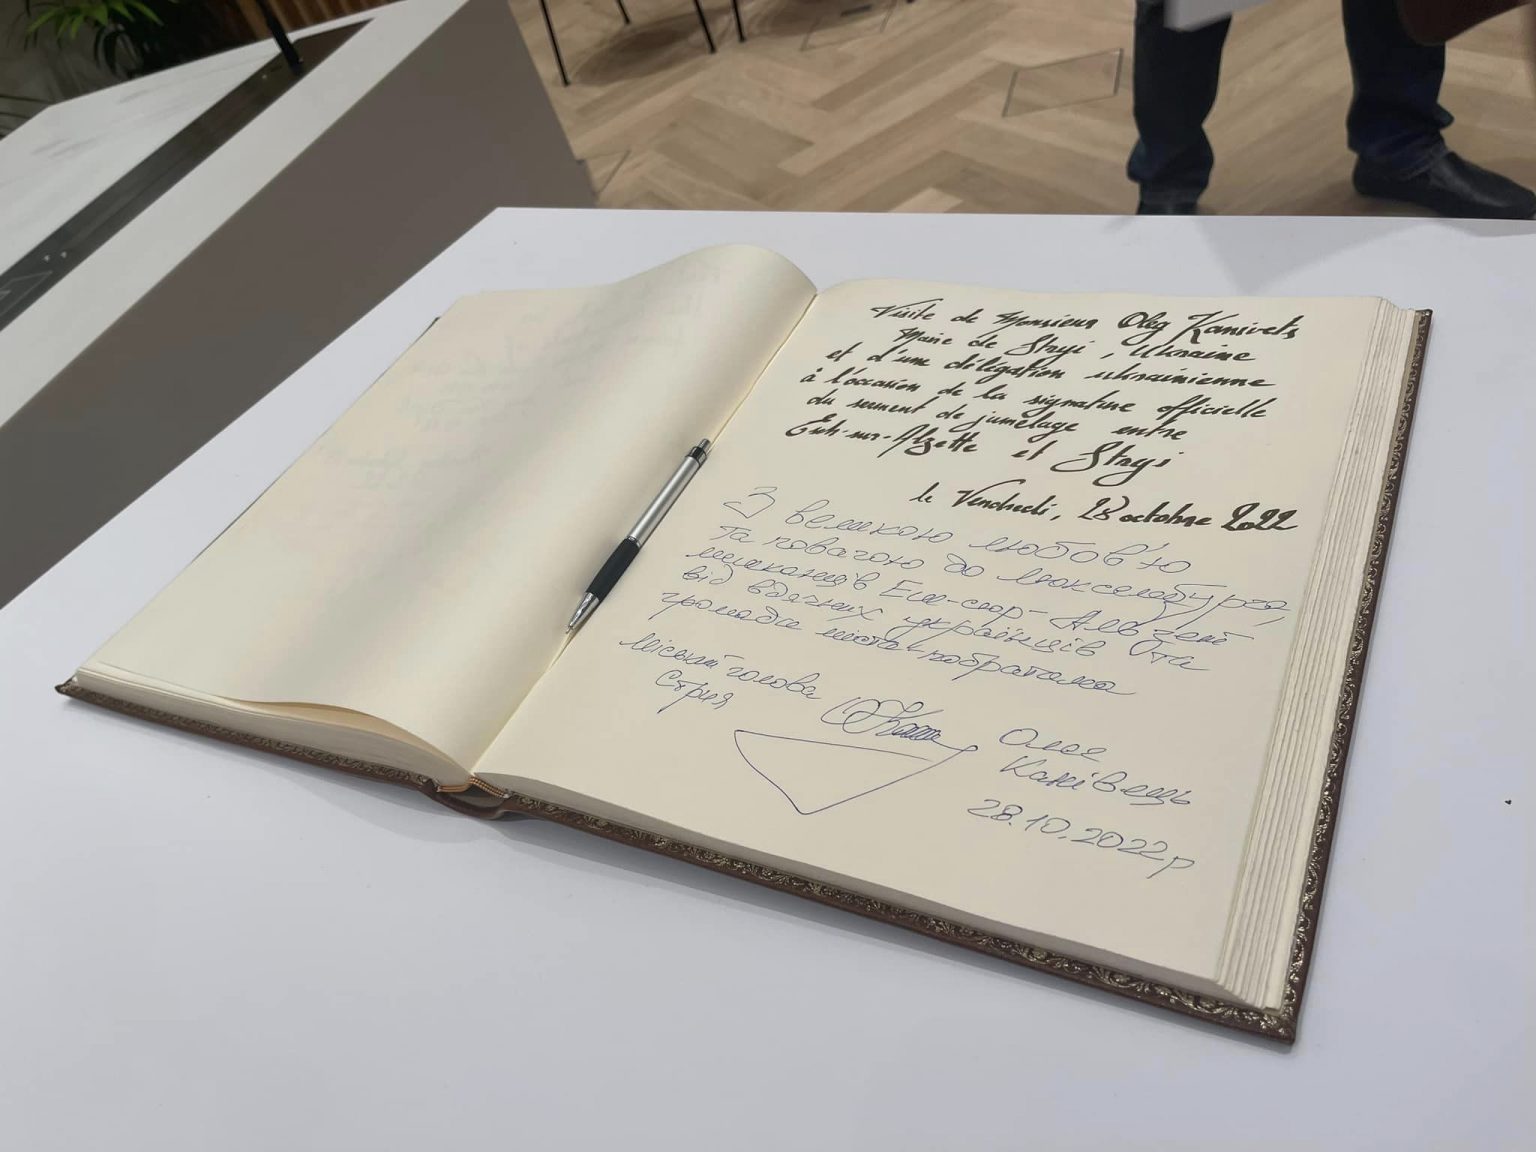 Visite de Monsieur Oleg Kanivets
Maire de Stryi, Ukraine
et d'une délégation ukrainienne
à l'occasion de la signature officielle
du serment de jumelage entre
Esch-sur-Alzette et Stryi
le Vendredi, 28 octobre 2022
З великою любов'ю
та повагою до Люксембурга,
мешканців Еш-сюр-Альзетт
від вдячних українців та
громади міста-побратима
Міський голова
Стрия
Олег
Канівець
28.10.2022р